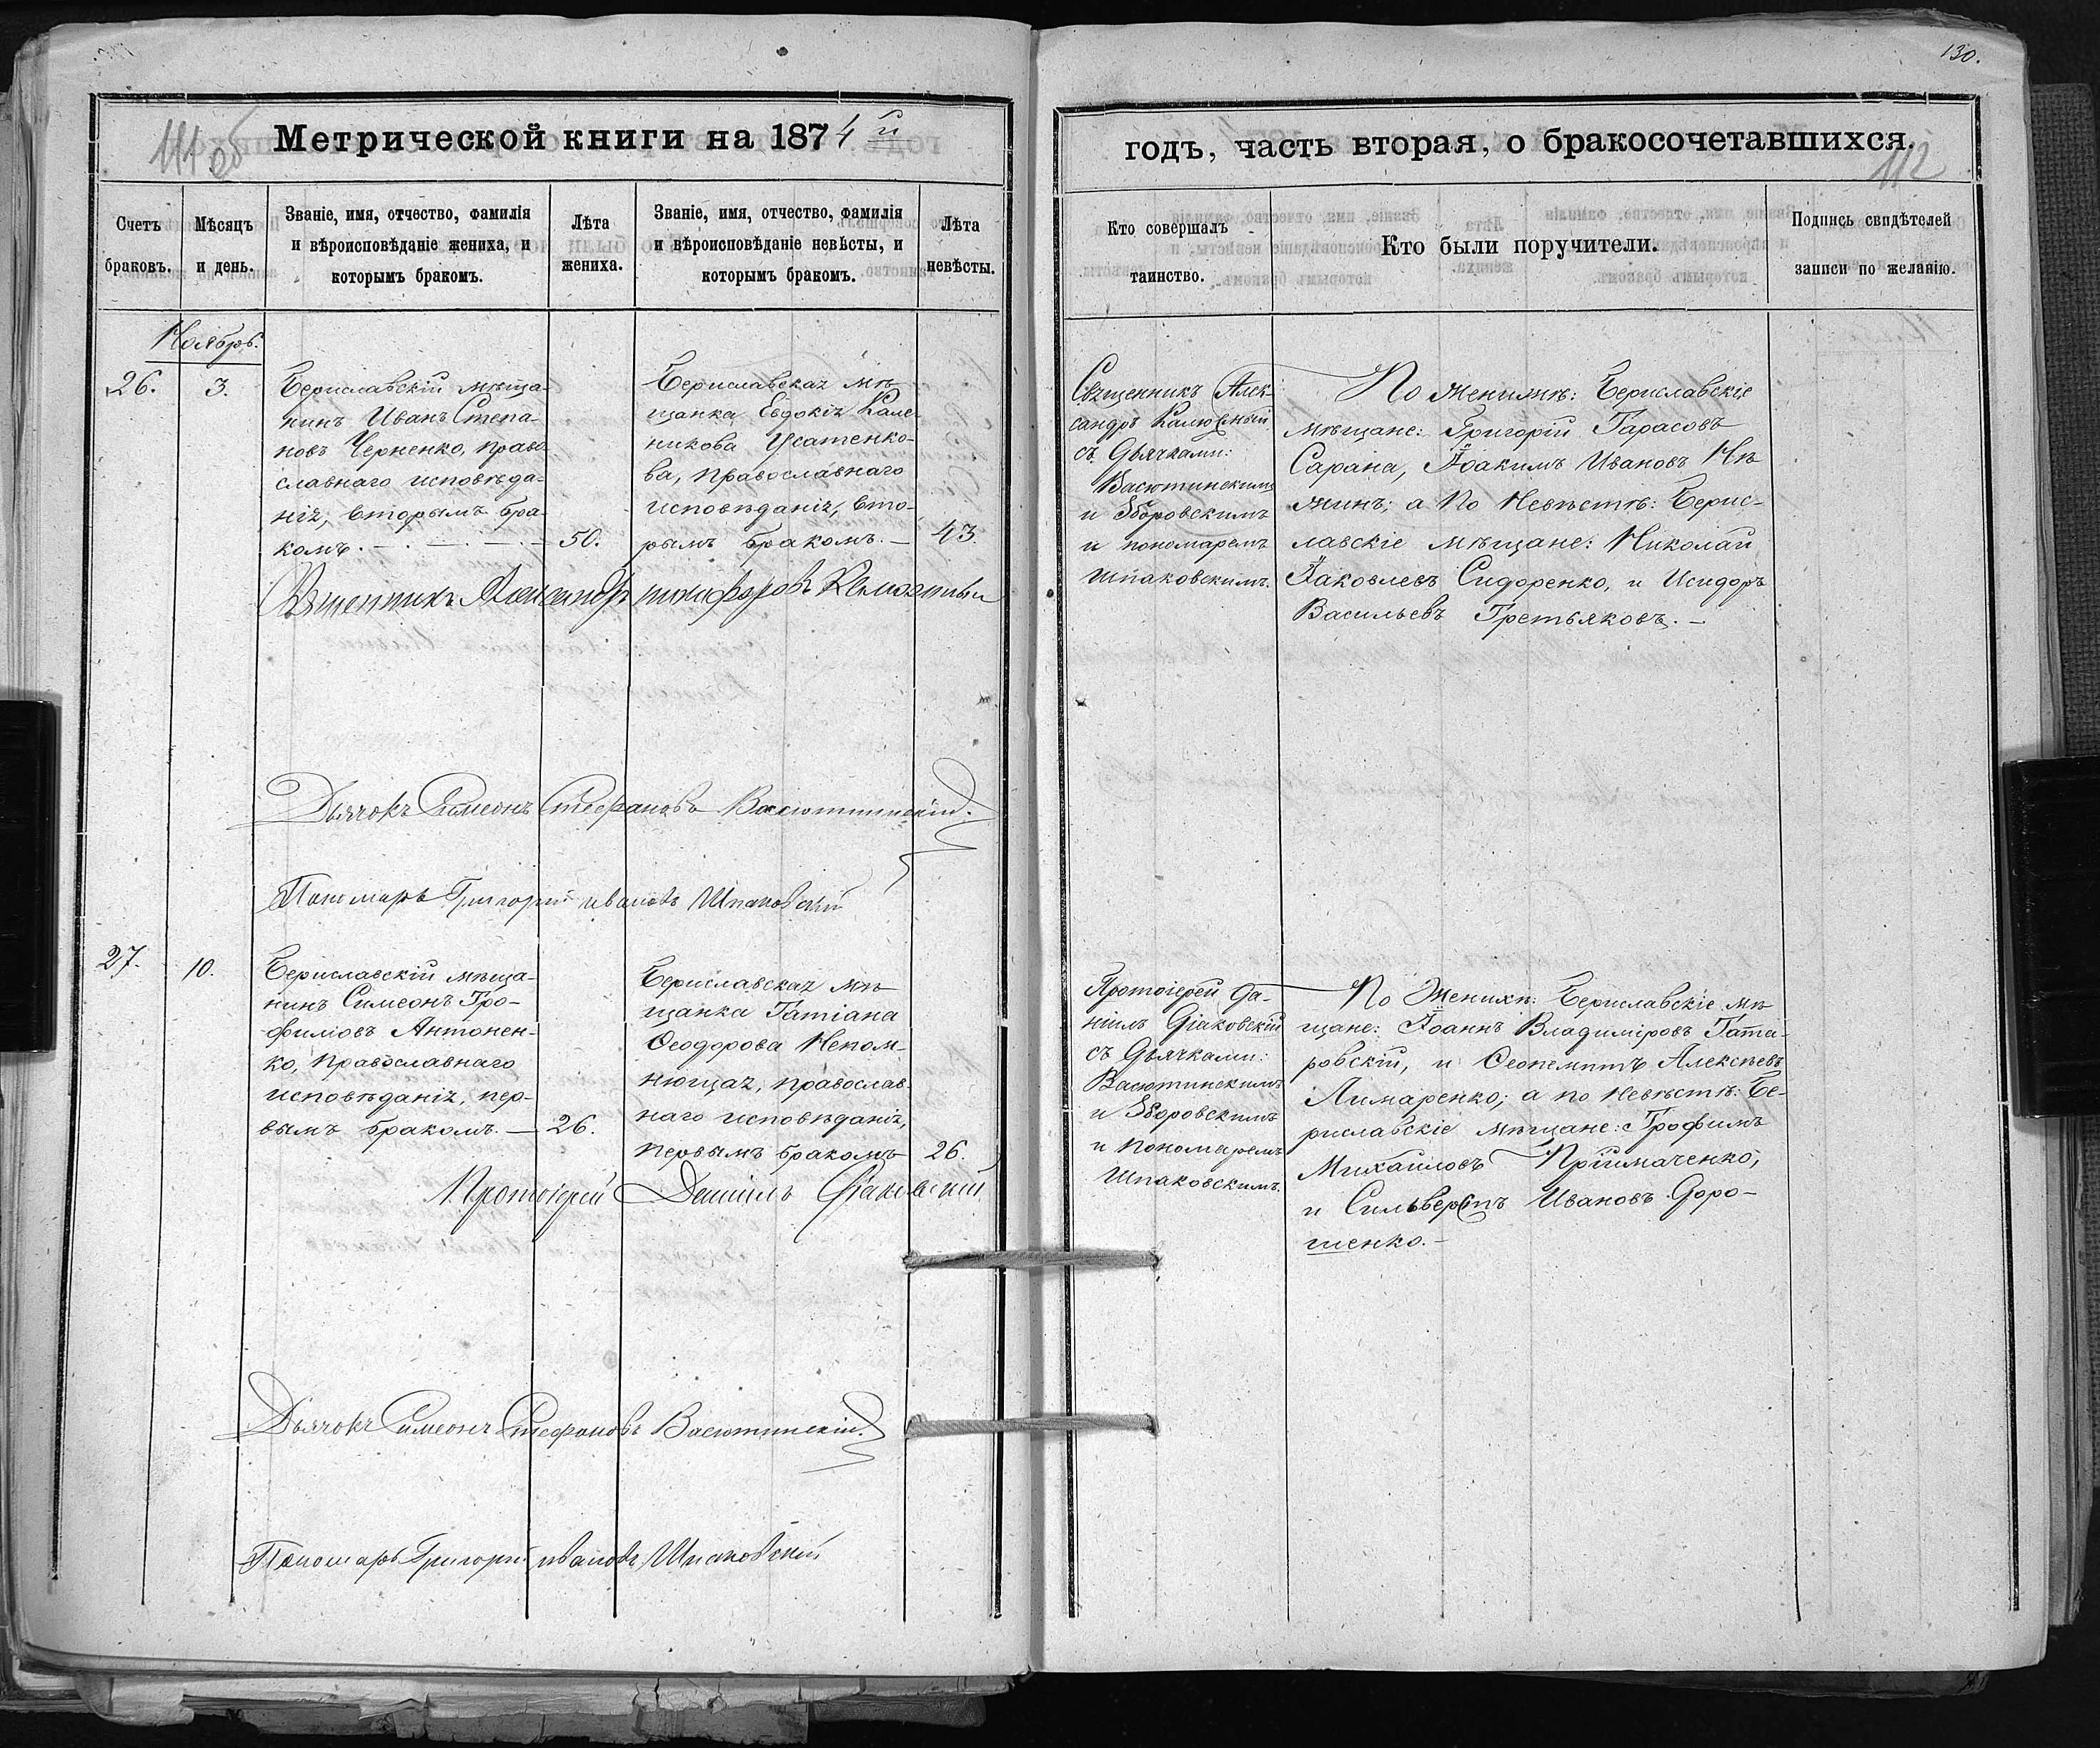 130.
111 об
Метрической книги на 1874 й
годъ, часть вторая, о бракосочетавшихся.
112
Счетъ браковъ.
Мѣсяцъ и день.
Званіе, имя, отчество, фамилія
и вѣроисповѣданіе жениха, и
которымъ бракомъ.
Лѣта
жениха.
Званіе, имя, отчество, фамилія
и вѣроисповѣданіе невѣсты, и
которымъ бракомъ.
Лѣта
невѣсты.
Кто совершалъ
таинство.
Кто были поручители.
Подпись свидѣтелей
записи по желанію.
Ноябрь.
26.
3.
Бериславскій мѣща-
нинъ Иванъ Степа-
новъ Черненко, право-
славнаго исповѣда-
нія, вторымъ бра-
комъ. —
50.
Бериславская мѣ-
щанка Евдокія Кале-
никова Усатенко-
ва, православнаго
исповѣданія, вто-
рымъ бракомъ. —
43.
Священникъ Алек-
сандръ
съ Дьячками:
Васютинскимъ
и Зборовскимъ
и пономаремъ
Шпаковскимъ.
По женихѣ: Бериславскіе
мѣщане: Григорій Тарасовъ
Сарана, Іоакимъ Ивановъ Нѣ-
жинъ; а по Невѣстѣ: Берис-
лавскіе мѣщане: Николай
Іаковлевъ Сидоренко, и Исидоръ
Васильевъ Третьяковъ. —
Священникъ Александръ Никифоровъ
Дьячокъ Симеонъ Стефановъ Васютинскій.
Пономарь Григорій Ивановъ Шпаковскій
27.
10.
Бериславскій мѣща-
нинъ Симеонъ Тро-
фимовъ Антонен-
ко, Православнаго
исповѣданія, пер-
вымъ бракомъ. —
26.
Бериславская мѣ-
щанка Татіана
Ѳеодорова Непом-
нющая, православ-
наго исповѣданія,
первымъ бракомъ
26.
Протоіерей Да-
ніилъ Діаковскій
съ Дьячками:
Васютинскимъ
и Зборовскимъ
и Пономаремъ
Шпаковскимъ.
По Женихѣ: Бериславскіе мѣ-
щане: Іоаннъ Владиміровъ Тата-
ровскій, и Ѳеопемптъ Алексѣевъ
Лимаренко; а по Невѣстѣ: Бе-
риславскіе мѣщане: Трофимъ
Михайловъ Пріймаченко,
и Сильверстъ Ивановъ Доро-
шенко. —
Протоіерей Даніилъ Діаковскій
Дьячокъ Симеонъ Стефановъ Васютинскій.
Пономарь Григорій Ивановъ Шпаковскій